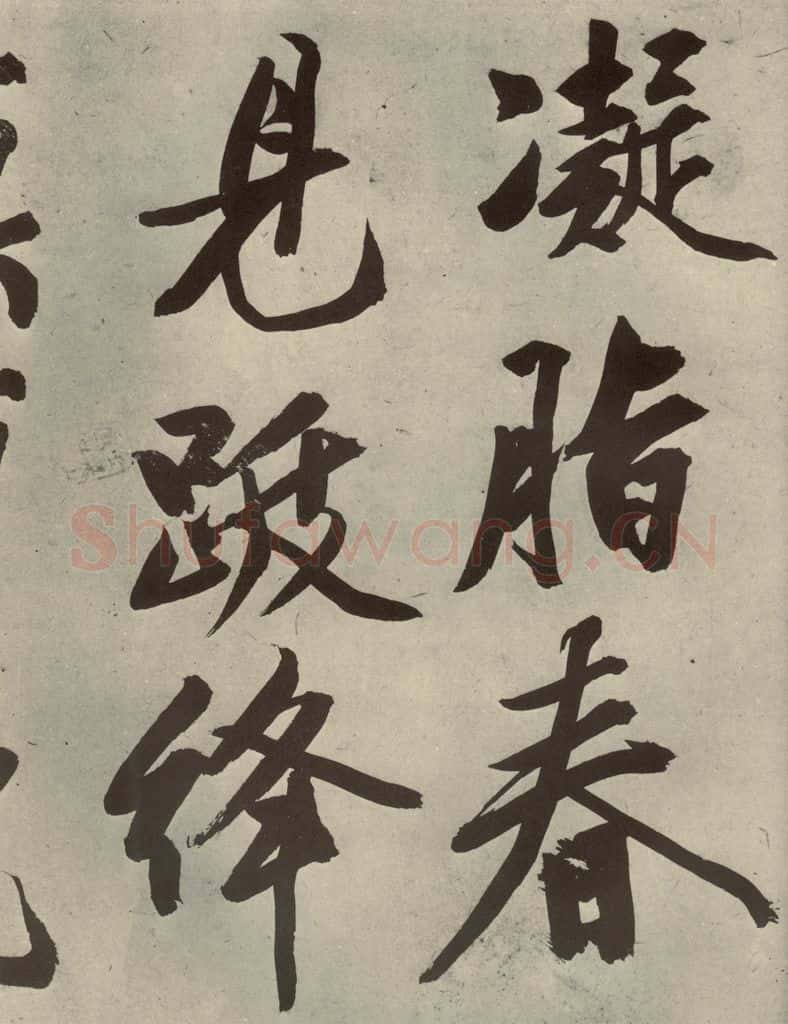 凝脂春
見跋絳
Shufawang.CN